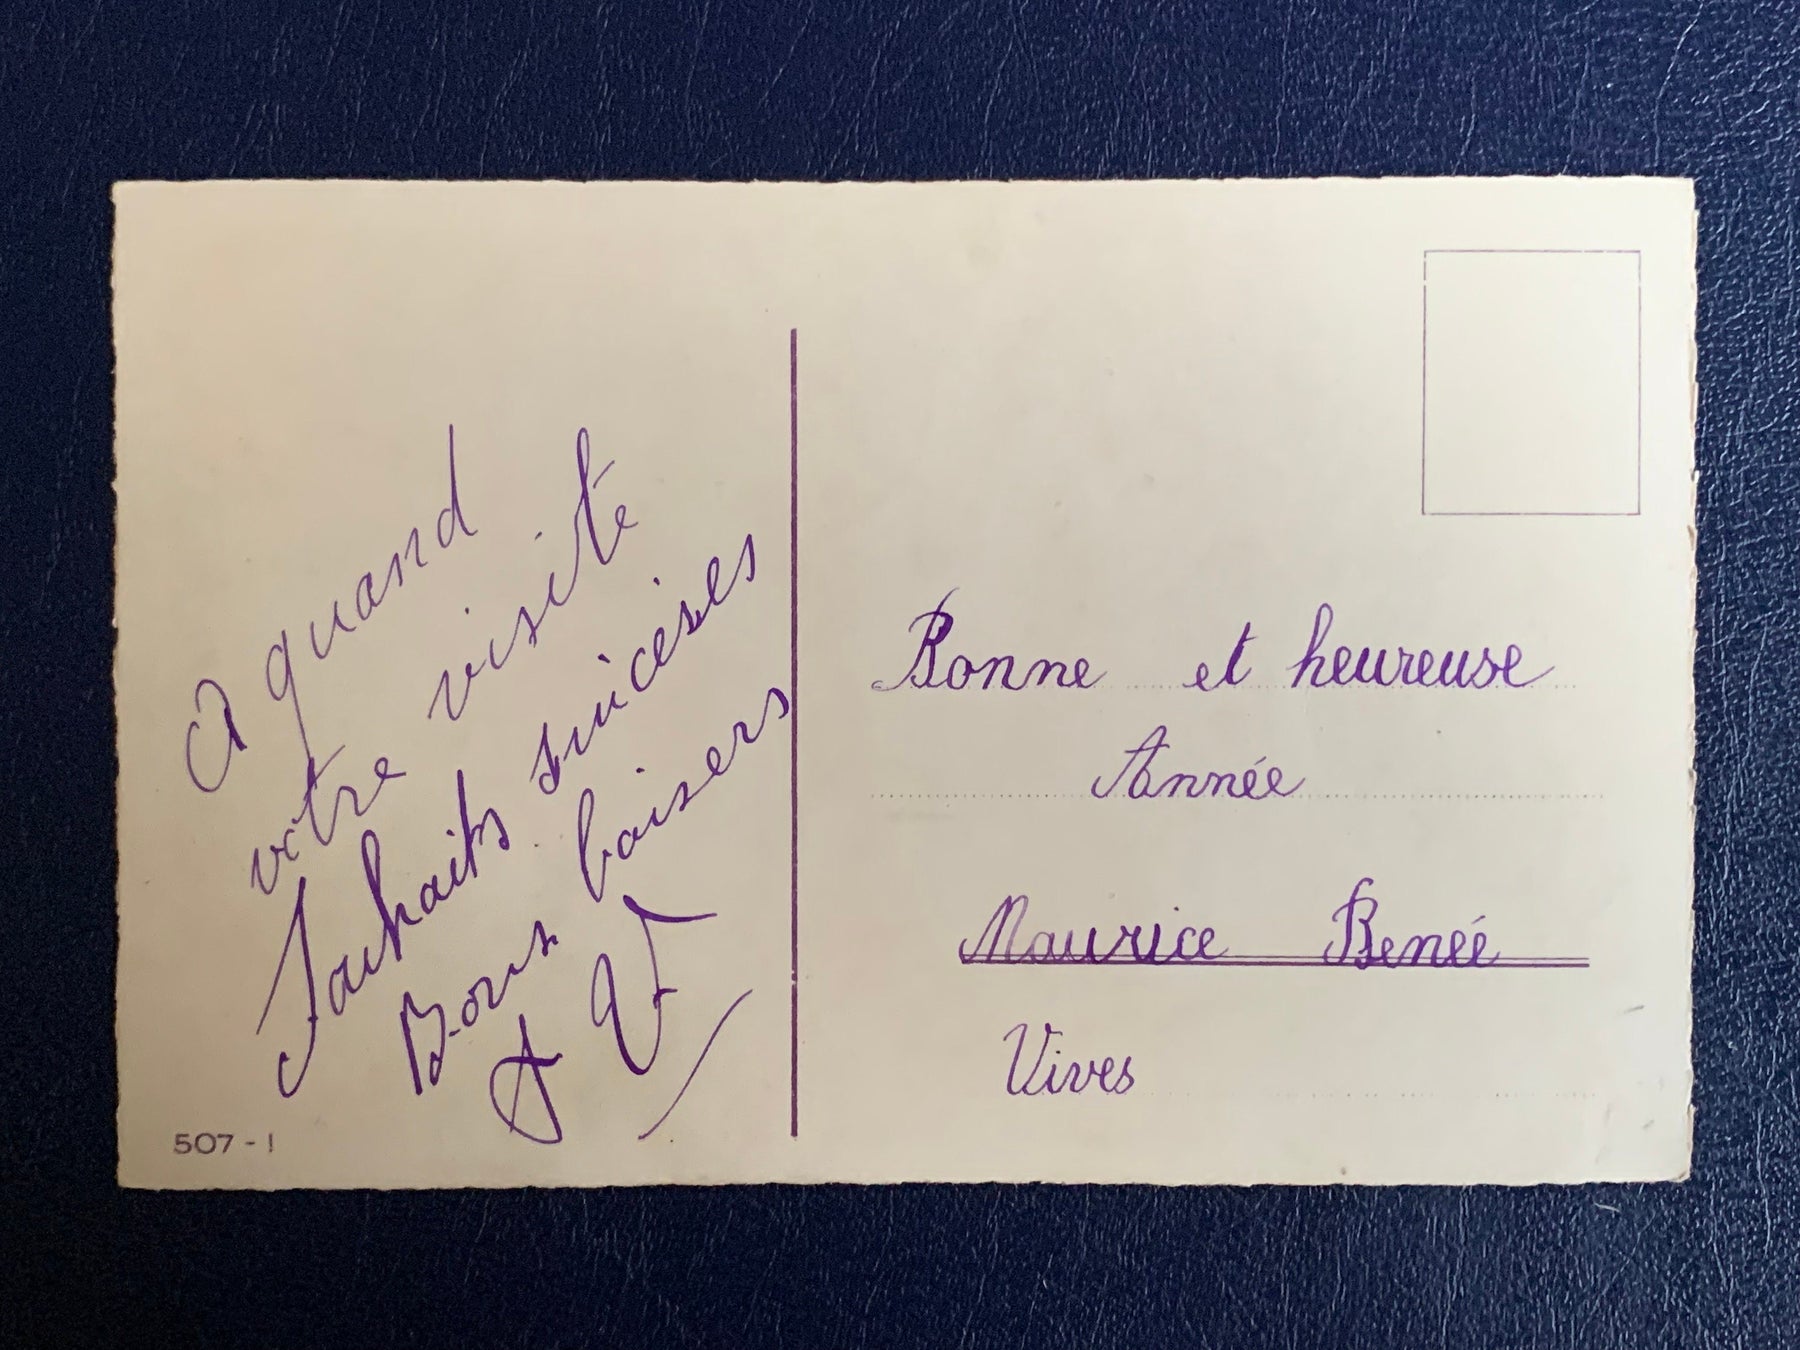 A quand
votre visite
Souhaits sincères
Bons baisers
A V
507-1
Bonne et heureuse
Année
Maurice Renée
Vives